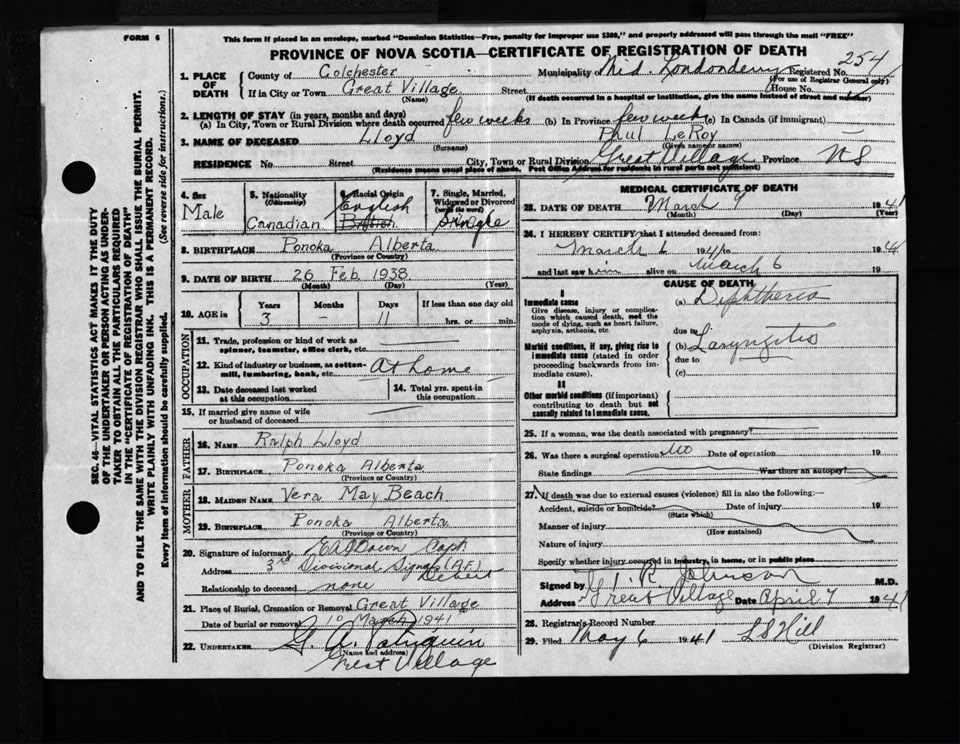 FORM 6
This form if placed in an envelope, marked "Dominion Statistics—Free, penalty for improper use $300," and properly addressed will pass through the mail "FREE"
PROVINCE OF NOVA SCOTIA—CERTIFICATE OF REGISTRATION OF DEATH
254
1. PLACE OF DEATH
County of Colchester Municipality of Londonderry Registered No.
(For use of Registrar General only)
If in City or Town Great Village Street House No.
(Name) (If death occurred in a hospital or institution, give the name instead of street and number)
2. LENGTH OF STAY (in years, months and days)
(a) In City, Town or Rural Division where death occurred few weeks (b) In Province few weeks (c) In Canada (if immigrant)
3. NAME OF DECEASED Lloyd Phul LeRoy
(Surname) (Given name or names)
RESIDENCE No Street City, Town or Rural Division Great Village Province NS
(Residence means usual place of abode. Post Office Address for residents in rural parts not sufficient)
4. Sex Male
5. Nationality (Citizenship) Canadian
6. Racial Origin English British
7. Single, Married, Widowed or Divorced (write the word) Single
8. BIRTHPLACE Ponoka Alberta
(Province or Country)
9. DATE OF BIRTH 26 Feb 1938
(Month) (Day) (Year)
10. AGE in Years Months Days If less than one day old
3 – 11 hrs. or min.
OCCUPATION
11. Trade, profession or kind of work as spinner, teamster, office clerk, etc.
12. Kind of industry or business, as cotton-mill, lumbering, bank, etc. At home
13. Date deceased last worked at this occupation
14. Total yrs. spent in this occupation
15. If married give name of wife or husband of deceased
FATHER
16. NAME Ralph Lloyd
17. BIRTHPLACE Ponoka Alberta
(Province or Country)
MOTHER
18. MAIDEN NAME Vera May Beach
19. BIRTHPLACE Ponoka Alberta
(Province or Country)
20. Signature of informant Capt.
Address 3rd Divisional Signals (AF) Debert
Relationship to deceased none
21. Place of Burial, Cremation or Removal Great Village
Date of burial or removal 10 March 1941
22. UNDERTAKER G. A. Patriquin
(Name and address)
Great Village
MEDICAL CERTIFICATE OF DEATH
23. DATE OF DEATH March 9 1941
(Month) (Day) (Year)
24. I HEREBY CERTIFY that I attended deceased from:
March 6 1941 to 194
and last saw him alive on March 6 19
CAUSE OF DEATH
I
Immediate cause
Give disease, injury or complication which caused death, not the mode of dying, such as heart failure, asphyxia, asthenia, etc.
(a) Diphtheria
due to
Morbid conditions, if any, giving rise to immediate cause (stated in order proceeding backwards from immediate cause).
(b) Laryngitis
due to
(c)
II
Other morbid conditions (if important) contributing to death but not causally related to immediate cause.
25. If a woman, was the death associated with pregnancy?
26. Was there a surgical operation No Date of operation 19
State findings Was there an autopsy?
27. If death was due to external causes (violence) fill in also the following:—
Accident, suicide or homicide? Date of injury 19
(State which)
Manner of injury
(How sustained)
Nature of injury
Specify whether injury occurred in industry, in home, or in public place
Signed by T. R. Johnson M.D.
Address Great Village Date April 7 1941
28. Registrar's Record Number
29. Filed May 6 1941 L S Hill
(Division Registrar)
SEC. 46—VITAL STATISTICS ACT MAKES IT THE DUTY
OF THE UNDERTAKER OR PERSON ACTING AS UNDER-
TAKER TO OBTAIN ALL THE PARTICULARS REQUIRED
IN THE "CERTIFICATE OF REGISTRATION OF DEATH"
AND TO FILE THE SAME WITH THE DIVISION REGISTRAR WHO SHALL ISSUE THE BURIAL PERMIT.
WRITE PLAINLY WITH UNFADING INK. THIS IS A PERMANENT RECORD.
Every item of information should be carefully supplied. (See reverse side for instructions.)